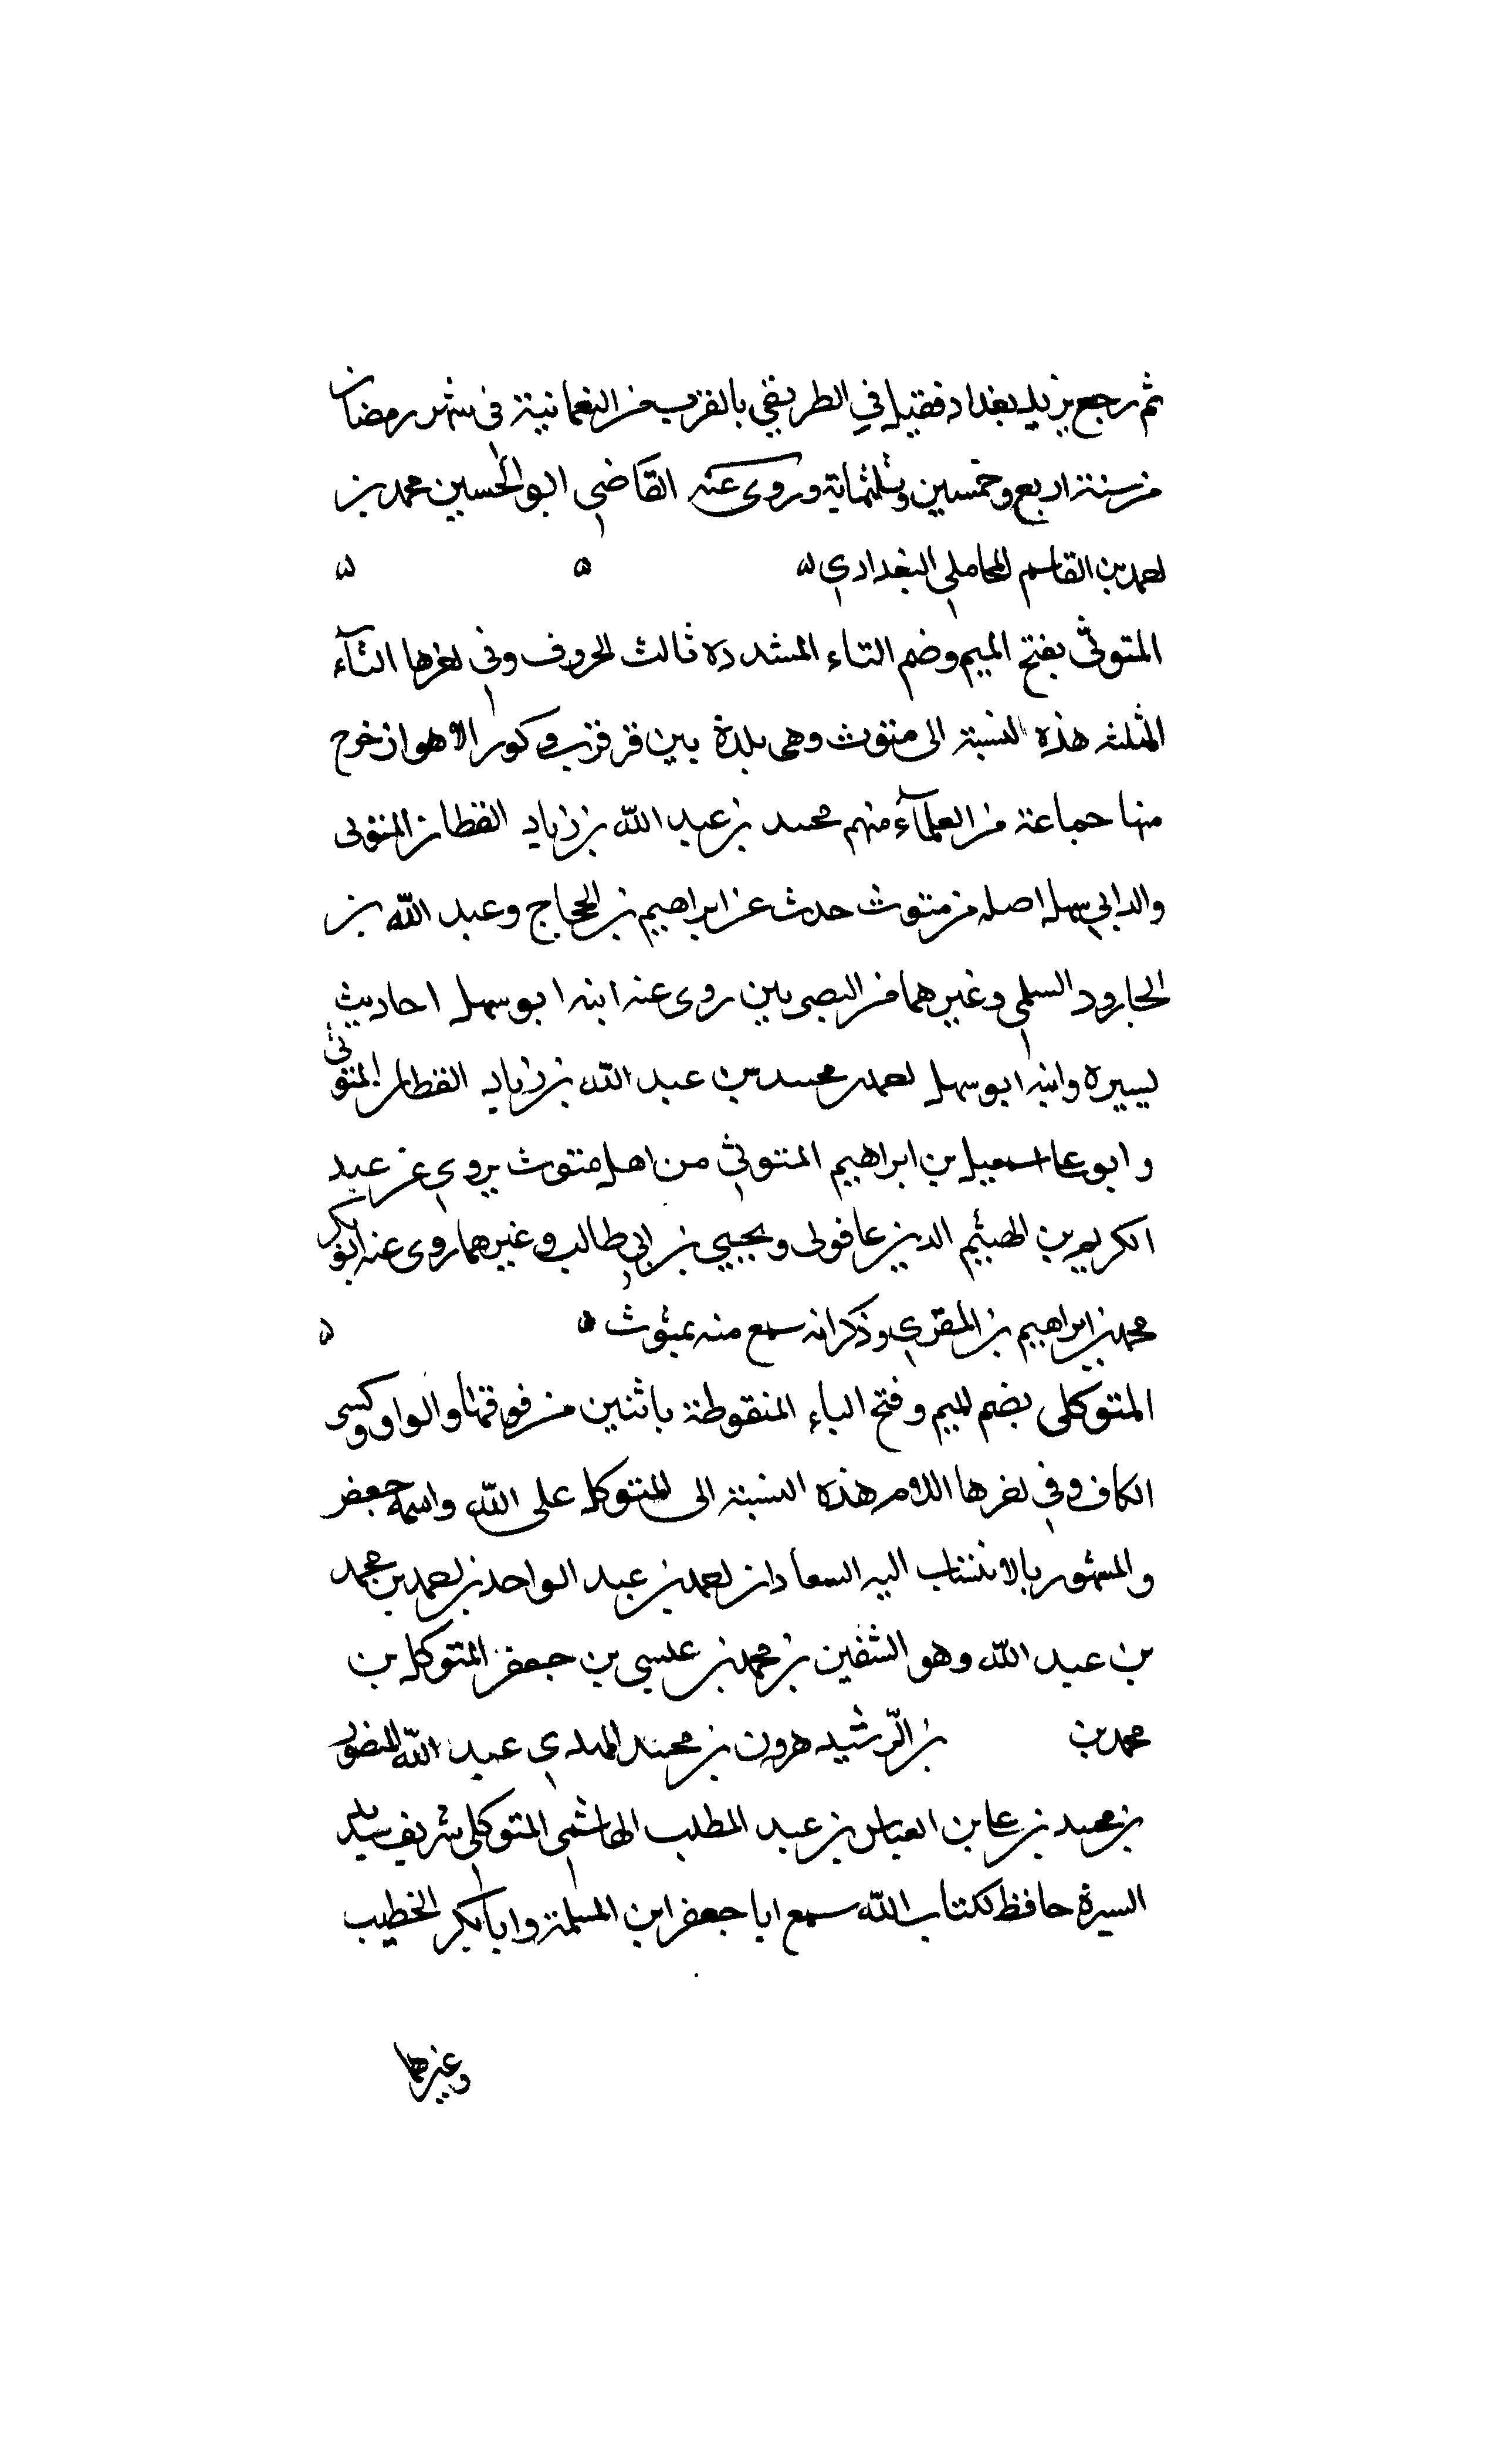 ثم رجع يريد بغداد فقتل في الطريق بالقرب من النعمانية في شهر رمضان
من سنة اربع وخمسين وثلثماية وروى عنه القاضي ابو الحسين محمد بن
احمد بن القاسم المحاملي البغدادي ه ه ه
المتوثي بفتح الميم وضم التاء المشددة ثالث الحروف وفي اخرها الثآء
المثلثه هذه النسبة الى متوث وهي بلدة بين قرقوب وكور الاهواز خرج
منها جماعة من العلمآء منهم محمد بن عبد الله بن زياد القطان المتوثي
والد ابي سهل اصله من متوث حدث عن ابراهيم بن الحجاج وعبد الله بن
الجارود السلمي وغيرهما من البصريين روى عنه ابنه ابو سهل احاديث
يسيره وابنه ابو سهل احمد بن محمد بن عبد الله بن زياد القطان المتوثي
وابو على اسمعيل بن ابراهيم المتوثي من اهل متوث يروي عن عبد
الكريم بن الهيثم الديرعاقولي ويحيى بن ابي طالب وغيرهما روى عنه ابو بكر
محمد بن ابراهيم بن المقري وذكر انه سمع منه بمتوث ه ه
المتوكلي بضم الميم وفتح التاء المنقوطة باثنين من فوقها والواو وكسر
الكاف وفي اخرها اللام هذه النسبة الى المتوكل على الله واسمه جعفر
والمشهور بالانتساب اليه السعادات احمد بن عبد الواحد بن احمد بن محمد
بن عبد الله وهو الشفنين بن محمد بن عيسى بن جعفر المتوكل بن
محمد بن بن الرشيد هرون بن محمد المهدي عبد الله المنصور
بن محمد بن على بن العباس بن عبد المطلب الهاشمي المتوكلي شريف سديد
السيرة حافظ لكتاب الله سمع ابا جعفر ابن المسلمة وابا بكر الخطيب
وغيرهما